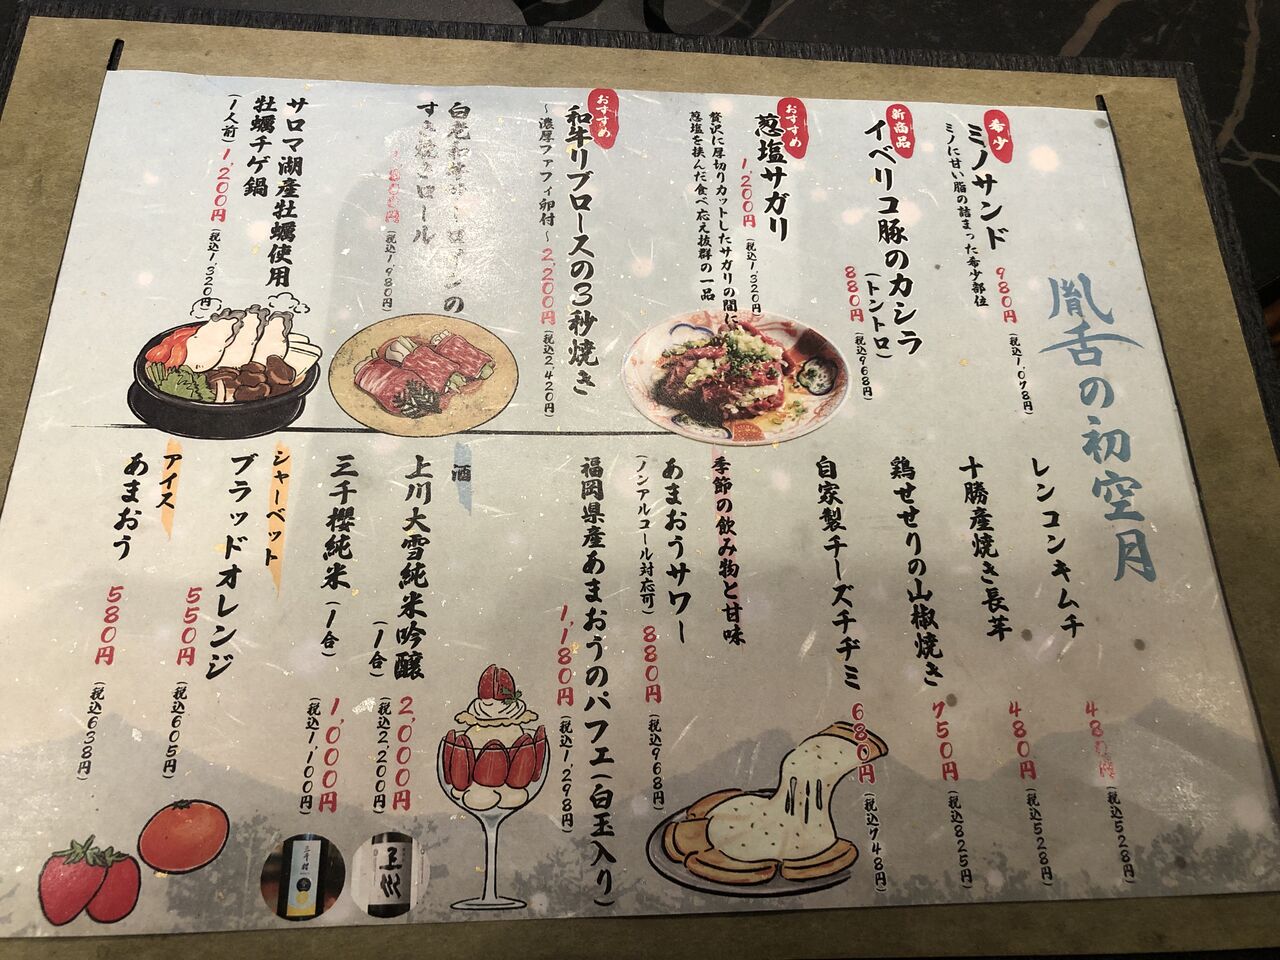 胤舌の初空月
希少
ミノサンド
ミノに甘い脂の詰まった希少部位
980円(税込1,078円)
新商品
イベリコ豚のカシラ
(トントロ)
880円(税込968円)
おすすめ
葱塩サガリ
1,200円(税込1,320円)
贅沢に厚切りカットしたサガリの間に
葱塩を挟んだ食べ応え抜群の一品
おすすめ
和牛リブロースの3秒焼き
～濃厚ファフィ卵付～2,200円(税込2,420円)
白老和牛
の
すき焼きロール
(税込1,980円)
サロマ湖産牡蠣使用
牡蠣チゲ鍋
(1人前)1,200円(税込1,320円)
レンコンキムチ
480円(税込528円)
十勝産焼き長芋
480円(税込528円)
鶏せせりの山椒焼き
750円(税込825円)
自家製チーズチヂミ
680円(税込748円)
季節の飲み物と甘味
あまおうサワー
(ノンアルコール対応可)880円(税込968円)
福岡県産あまおうのパフェ(白玉入り)
1,180円(税込1,298円)
酒
上川大雪純米吟醸
(1合)
2,000円
(税込2,200円)
三千櫻純米(1合)
1,000円
(税込1,100円)
シャーベット
ブラッドオレンジ
550円(税込605円)
アイス
あまおう
580円(税込638円)